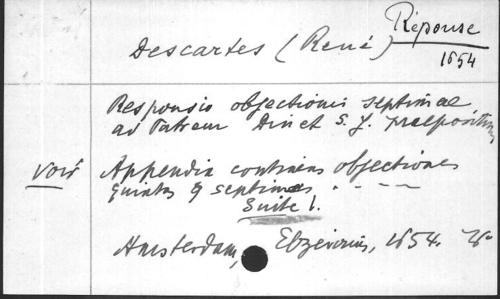 Réponse
Descartes (René)
1654
Responsio objectionis septimae
ad Patrem Dinet S. J. praepositum
voir Appendix continens objectiones
quintas & septimas . . — —
Suite 1.
Amsterdam, Elzevirius, 1654.